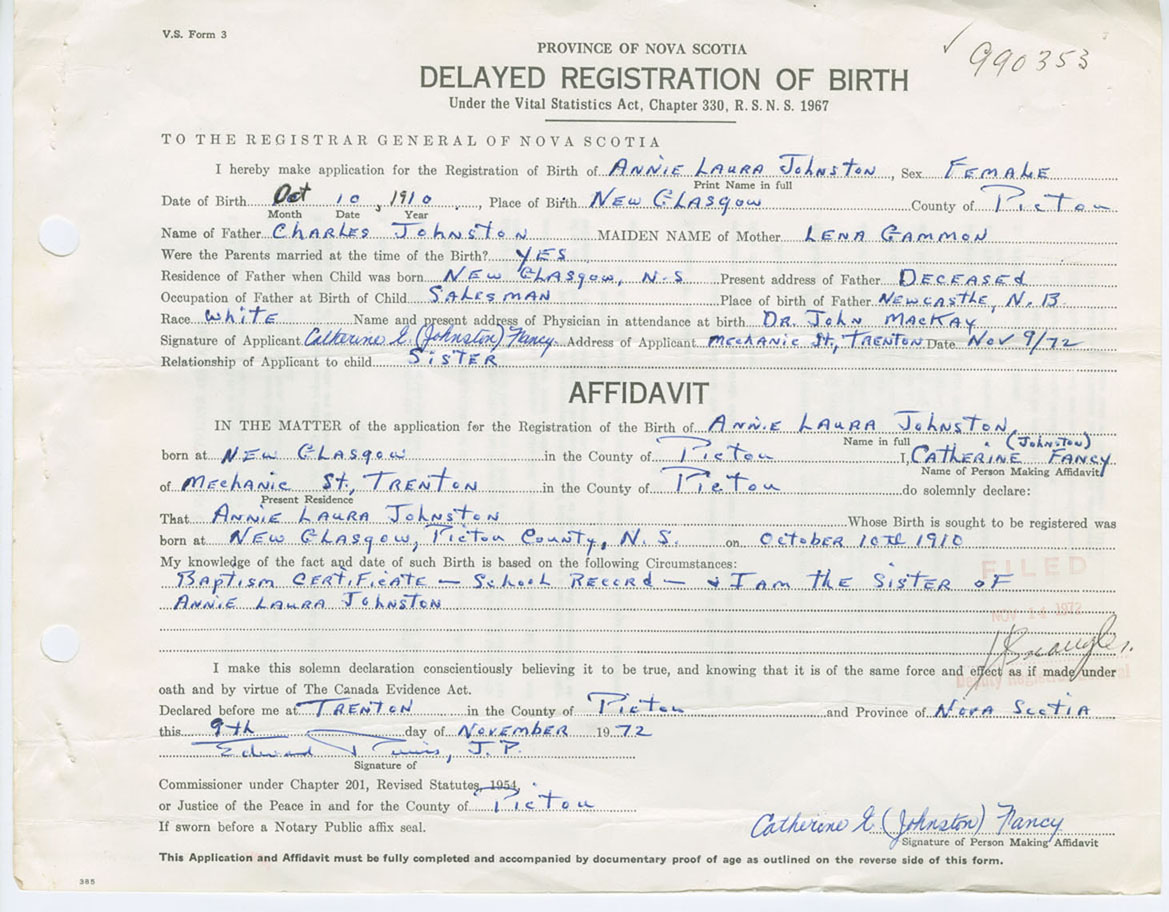 V.S. Form 3
990353
PROVINCE OF NOVA SCOTIA
DELAYED REGISTRATION OF BIRTH
Under the Vital Statistics Act, Chapter 330, R. S. N. S. 1967
TO THE REGISTRAR GENERAL OF NOVA SCOTIA
I hereby make application for the Registration of Birth of ANNIE LAURA JOHNSTON, Sex FEMALE
Print Name in full
Date of Birth Oct 10, 1910, Place of Birth NEW GLASGOW County of PICTOU
Month Date Year
Name of Father CHARLES JOHNSTON MAIDEN NAME of Mother LENA GAMMON
Were the Parents married at the time of the Birth? YES
Residence of Father when Child was born NEW GLASGOW, N.S Present address of Father DECEASED
Occupation of Father at Birth of Child SALESMAN Place of birth of Father NEWCASTLE, N.B.
Race WHITE Name and present address of Physician in attendance at birth DR. JOHN MACKAY
Signature of Applicant Catherine E. (Johnston) Fancy Address of Applicant MECHANIC St., TRENTON Date Nov 9/72
Relationship of Applicant to child SISTER
AFFIDAVIT
IN THE MATTER of the application for the Registration of the Birth of ANNIE LAURA JOHNSTON
Name in full (JOHNSTON)
born at NEW GLASGOW in the County of PICTOU I, CATHERINE FANCY
Name of Person Making Affidavit
of MECHANIC St., TRENTON in the County of PICTOU do solemnly declare:
Present Residence
That ANNIE LAURA JOHNSTON Whose Birth is sought to be registered was
born at NEW GLASGOW, PICTOU COUNTY, N.S. on OCTOBER 10th 1910
My knowledge of the fact and date of such Birth is based on the following Circumstances:
BAPTISM CERTIFICATE — SCHOOL RECORD — & I AM THE SISTER OF
ANNIE LAURA JOHNSTON
FILED
NOV 14 1972
I make this solemn declaration conscientiously believing it to be true, and knowing that it is of the same force and effect as if made under
Deputy Registrar General
oath and by virtue of The Canada Evidence Act.
Declared before me at TRENTON in the County of PICTOU and Province of NOVA SCOTIA
this 9th day of NOVEMBER 1972
Edward, J.P.
Signature of
Commissioner under Chapter 201, Revised Statutes, 1954,
or Justice of the Peace in and for the County of PICTOU
If sworn before a Notary Public affix seal.
Catherine E. (Johnston) Fancy
Signature of Person Making Affidavit
This Application and Affidavit must be fully completed and accompanied by documentary proof of age as outlined on the reverse side of this form.
385